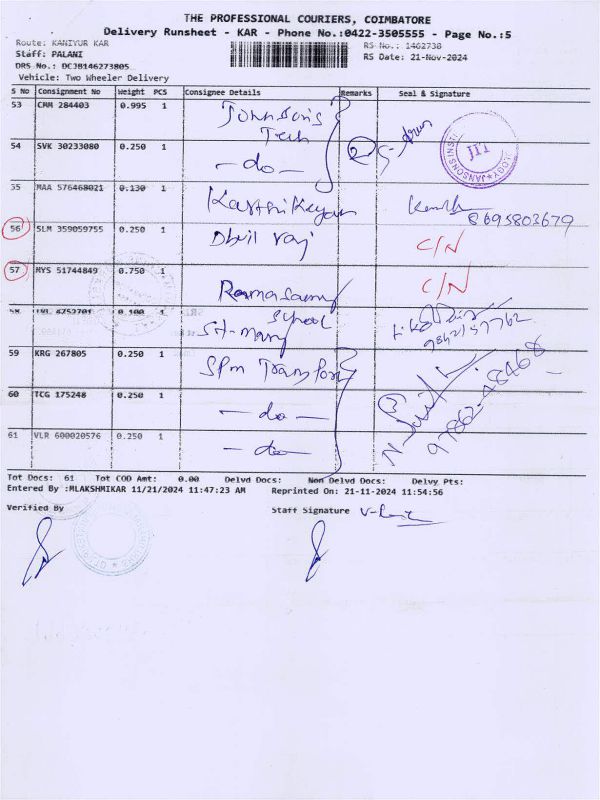 THE PROFESSIONAL COURIERS, COIMBATORE
Delivery Runsheet - KAR - Phone No.:0422-3505555 - Page No.:5
Route: KANIYUR KAR
RS No.: 1462738
Staff: PALANI
RS Date: 21-Nov-2024
DRS No.: DCJB146273805
Vehicle: Two Wheeler Delivery
S No Consignment No Weight PCS Consignee Details Remarks Seal & Signature
53 CMM 284403 0.995 1 Johnson's Tech
54 SVK 30233080 0.250 1 - do - 2
55 MAA 576468021 0.130 1 Karthikeyan 8695803679
56 SLM 359059755 0.250 1 C/N
57 MYS 51744849 0.750 1 Ramasamy C/N
58 0.100 1 St-mary School
59 KRG 267805 0.250 1 SPM Transport
60 TCG 175248 0.250 1 - do - 3
61 VLR 600020576 0.250 1 - do -
Tot Docs: 61 Tot COD Amt: 0.00 Delvd Docs: Non Delvd Docs: Delvy Pts:
Entered By :MLAKSHMIKAR 11/21/2024 11:47:23 AM Reprinted On: 21-11-2024 11:54:56
Verified By
Staff Signature